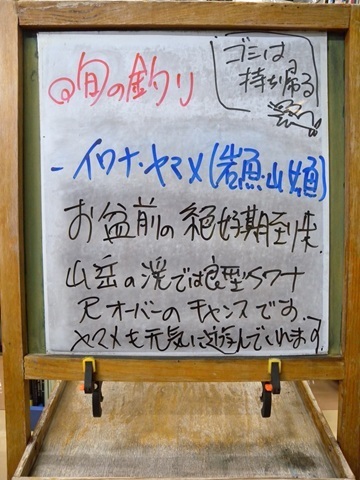 旬の釣り
ゴミは
持ち帰る
－イワナ・ヤマメ(岩魚・山女魚)
お盆前の絶好期到来
山岳の渓では良型イワナ
尺オーバーのチャンスです。
ヤマメも元気に遊んでくれます